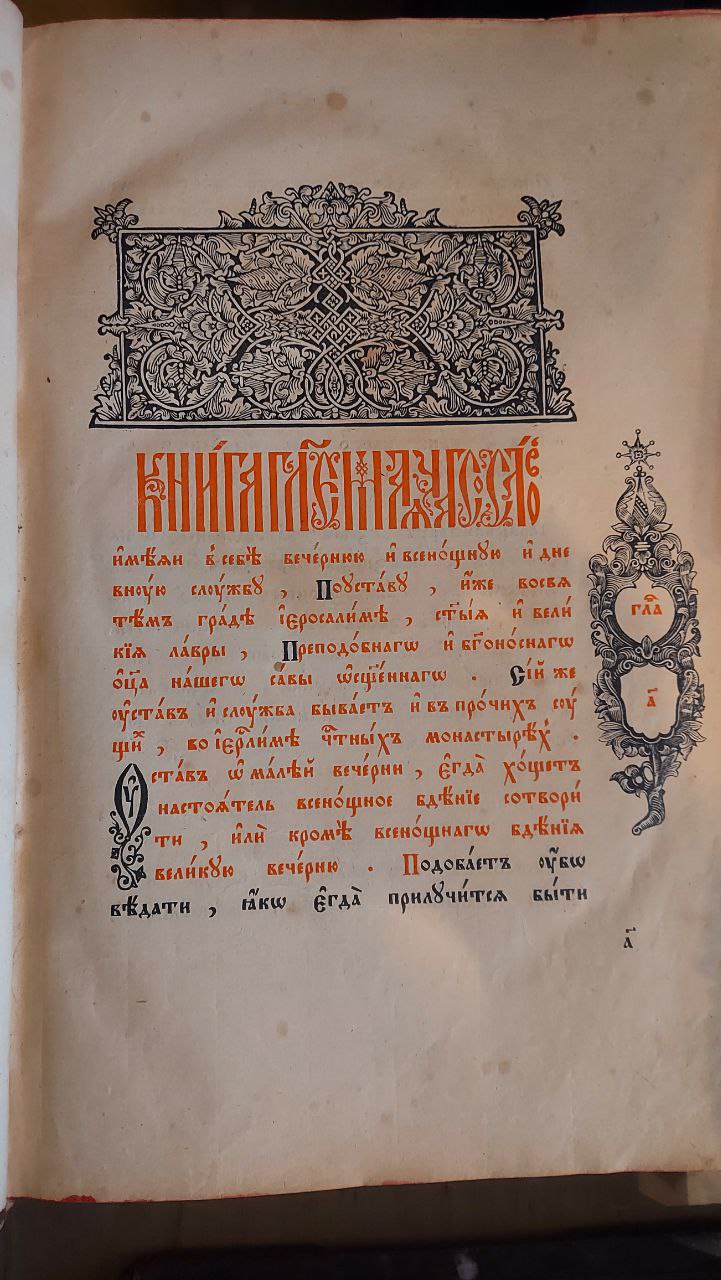 КНИ́ГА ГЛ҃ЕМАѦ ЧАСОСЛО́В
и҆мѣ́ѧи в̾ себѣ̀ вече́рнюю и҆ всено́щную и҆ дне
вну́ю слꙋ́жбꙋ , Поꙋста́вꙋ , и҆́же восвѧ
тѣ́мъ гра́дѣ і҆еросали́мѣ , ст҃ы́ѧ и҆ вели́
кїѧ ла́вры , Преподо́бнагѡ и҆ бг҃оно́снагѡ
ѻ҆ц҃а̀ на́шегѡ са́вы ѡ҆сщ҃е́ннагѡ . Се́й же
оу҆ста́въ и҆ слꙋ́жба быва́етъ и҆ в̾ про́чихъ сꙋ́
щи́х , во і҆ерⷭ҇ли́мѣ чⷭ҇тны́хъ монастырѣ́х .
Оу҆ста́въ ѡ҆ ма́лѣй вече́рни , є҆гда̀ хо́щетъ
настоѧ́тель всено́щное бдѣ́нїе сотвори́
ти , и҆лѝ кромѣ̀ всено́щнагѡ бдѣ́нїѧ
вели́кꙋю вече́рню . Подоба́етъ оу҆́бѡ
вѣ́дати , ꙗ҆́кѡ є҆гда̀ прилꙋчи́тсѧ бы́ти
глⷡ҇а
а҃
а҃